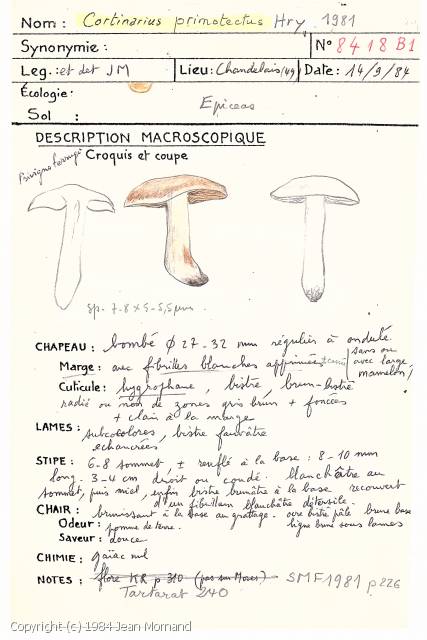 Nom : Cortinarius primotectus Hry. 1981
Synonymie : N° 8418B1
Leg. : et det JM Lieu: Chandelais (49) Date: 14/9/84
Écologie: Epiceas
Sol :
DESCRIPTION MACROSCOPIQUE
Croquis et coupe
Sp. 7-8 x 5-5,5 µm
CHAPEAU : bombé ø 27-32 mm régulier à ondulé
sans ou avec large mamelon
Marge : avec fibrilles blanches apprimées
Cuticule : hygrophane, bistre, brun-bistre
radié ou non de zones gris brun + foncées
+ clair à la marge
LAMES : subcolores, bistre fauvâtre
echancrées
STIPE : 6-8 sommet, ± renflé à la base : 8-10 mm
long. 3-4 cm droit ou condé. blanchâtre au
sommet, puis miel, enfin bistre brunâtre à la base recouvert
d'un fibrillum blanchâtre détersile.
CHAIR : brunissant à la base au grattage. ocre bistre pâle brune base
ligne brune sous lames
Odeur : pomme de terre.
Saveur : douce
CHIMIE : gaïac nul
NOTES : flore KR p 310 (pas sur Moser) SMF 1981 p 226
Tartarat 240
Copyright (c) 1984 Jean Mornand